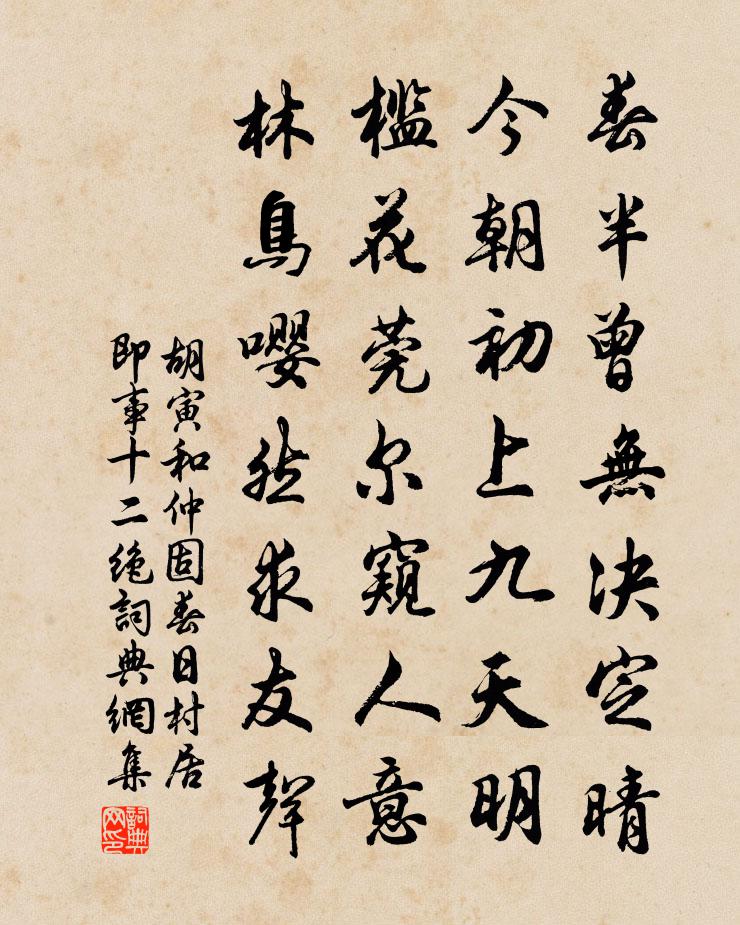 春半曾無決定晴
今朝初上九天明
檻花莞尔窺人意
林鳥嚶然求友聲
胡寅和仲固春日村居
即事十二絶詞典網集
詞典网印